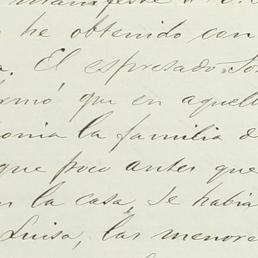 manifesté
he obtenido con
El espresado So
rmó que en aquell
onia la familia d
que poco antes que
la casa, se habia
Luisa, las menore